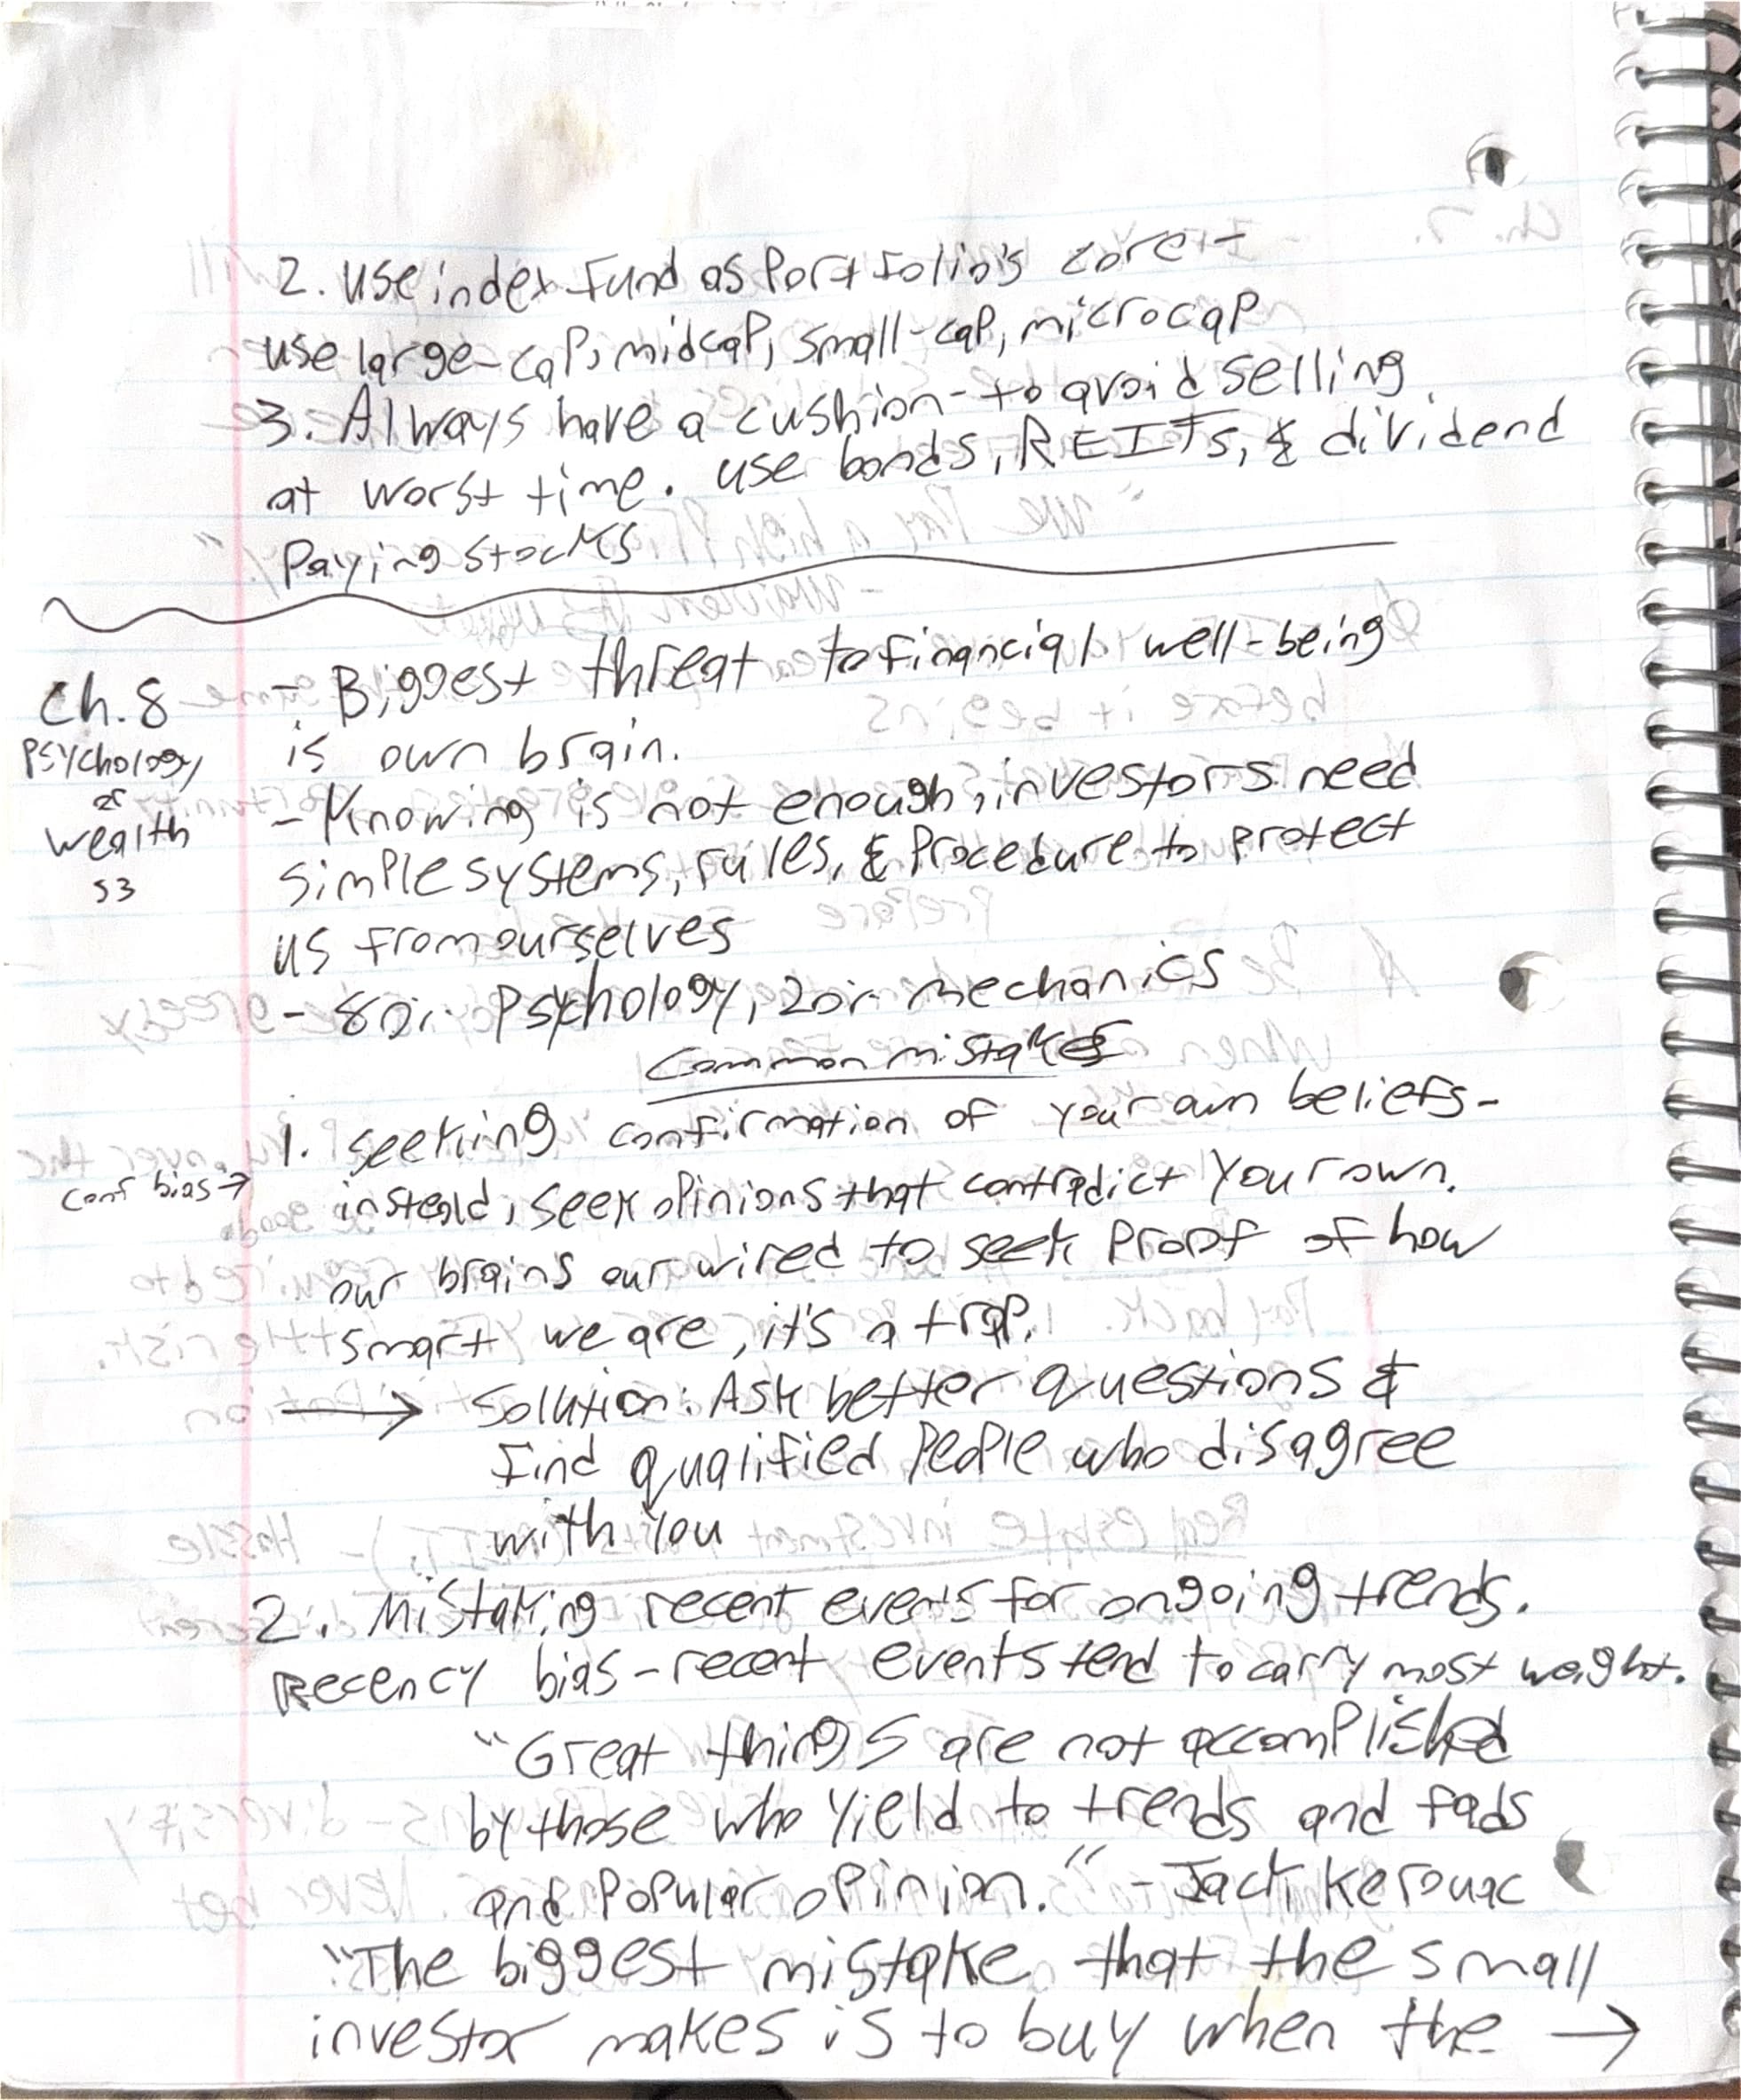 2. use index fund as Portfolio's core -
use large-cap, midcap, small-cap, microcap
3. Always have a cushion - to avoid selling
at worst time. use bonds, REITs, & dividend
Paying stocks
Ch. 8
Psychology
of
Wealth
53
- Biggest threat to financial well-being
is own brain.
- Knowing is not enough, investors need
simple systems, rules, & Procedure to protect
us from ourselves
- 80% Psychology, 20% mechanics
Common mistakes
1. seeking confirmation of your own beliefs -
conf bias →
instead, seek opinions that contradict your own.
our brains our wired to seek Proof of how
smart we are, it's a trap.
→ Solution: Ask better questions &
find qualified People who disagree
with you
2. Mistaking recent events for ongoing trends.
Recency bias - recent events tend to carry most weight.
"Great things are not accomplished
by those who yield to trends and fads
and Popular opinion." - Jack Kerouac
"The biggest mistake that the small
investor makes is to buy when the →